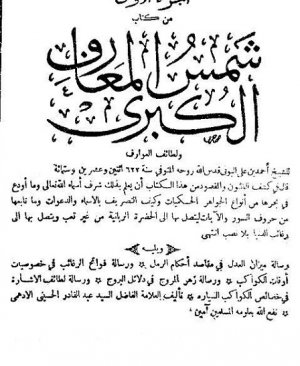 الجزء الاول
من كتاب
شمس المعارف
الكبرى
ولطائف العوارف
للشيخ أحمد بن علي البوني قدس الله روحه المتوفى سنة ٦٢٢ اثنين وعشرين وستمائة
قال في كشف الظنون والمقصود من هذا الكتاب أن يعلم بذلك شرف أسماء الله تعالى وما أودع
في بحرها من أنواع الجواهر الحكميات وكيف التصرف بالاسماء والدعوات وما تابعها
من حروف السور والآيات ليتصل بها الى الحضرة الربانية من غير تعب ويتصل بها الى
رغائب الدنيا بلا نصب انتهى
ويليه
رسالة ميزان العدل في مقاصد أحكام الرمل ورسالة فواتح الرغائب في خصوصيات
أوقات الكواكب ورسالة زهر المروج في دلائل البروج ورسالة لطائف الاشارة
في خصائص الكواكب السيارة تأليف العلامة الفاضل السيد عبد القادر الحسيني الادهمي
نفع الله بعلومه المسلمين آمين